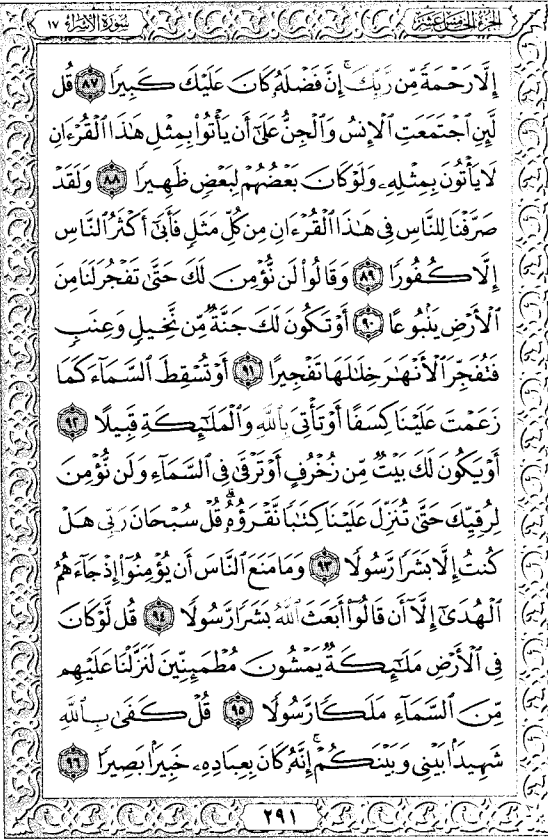 سورة الإسراء ١٧
الجزء الخامس عشر
إِلَّا رَحْمَةً مِّن رَّبِّكَ ۚ إِنَّ فَضْلَهُۥ كَانَ عَلَيْكَ كَبِيرًا ٨٧ قُل
لَّئِنِ ٱجْتَمَعَتِ ٱلْإِنسُ وَٱلْجِنُّ عَلَىٰٓ أَن يَأْتُوا۟ بِمِثْلِ هَٰذَا ٱلْقُرْءَانِ
لَا يَأْتُونَ بِمِثْلِهِۦ وَلَوْ كَانَ بَعْضُهُمْ لِبَعْضٍ ظَهِيرًا ٨٨ وَلَقَدْ
صَرَّفْنَا لِلنَّاسِ فِى هَٰذَا ٱلْقُرْءَانِ مِن كُلِّ مَثَلٍ فَأَبَىٰٓ أَكْثَرُ ٱلنَّاسِ
إِلَّا كُفُورًا ٨٩ وَقَالُوا۟ لَن نُّؤْمِنَ لَكَ حَتَّىٰ تَفْجُرَ لَنَا مِنَ
ٱلْأَرْضِ يَنۢبُوعًا ٩٠ أَوْ تَكُونَ لَكَ جَنَّةٌ مِّن نَّخِيلٍ وَعِنَبٍ
فَتُفَجِّرَ ٱلْأَنْهَٰرَ خِلَٰلَهَا تَفْجِيرًا ٩١ أَوْ تُسْقِطَ ٱلسَّمَآءَ كَمَا
زَعَمْتَ عَلَيْنَا كِسَفًا أَوْ تَأْتِىَ بِٱللَّهِ وَٱلْمَلَٰٓئِكَةِ قَبِيلًا ٩٢
أَوْ يَكُونَ لَكَ بَيْتٌ مِّن زُخْرُفٍ أَوْ تَرْقَىٰ فِى ٱلسَّمَآءِ وَلَن نُّؤْمِنَ
لِرُقِيِّكَ حَتَّىٰ تُنَزِّلَ عَلَيْنَا كِتَٰبًا نَّقْرَؤُهُۥ ۗ قُلْ سُبْحَانَ رَبِّى هَلْ
كُنتُ إِلَّا بَشَرًا رَّسُولًا ٩٣ وَمَا مَنَعَ ٱلنَّاسَ أَن يُؤْمِنُوٓا۟ إِذْ جَآءَهُمُ
ٱلْهُدَىٰٓ إِلَّآ أَن قَالُوٓا۟ أَبَعَثَ ٱللَّهُ بَشَرًا رَّسُولًا ٩٤ قُل لَّوْ كَانَ
فِى ٱلْأَرْضِ مَلَٰٓئِكَةٌ يَمْشُونَ مُطْمَئِنِّينَ لَنَزَّلْنَا عَلَيْهِم
مِّنَ ٱلسَّمَآءِ مَلَكًا رَّسُولًا ٩٥ قُلْ كَفَىٰ بِٱللَّهِ
شَهِيدًۢا بَيْنِى وَبَيْنَكُمْ ۚ إِنَّهُۥ كَانَ بِعِبَادِهِۦ خَبِيرًۢا بَصِيرًا ٩٦
٢٩١